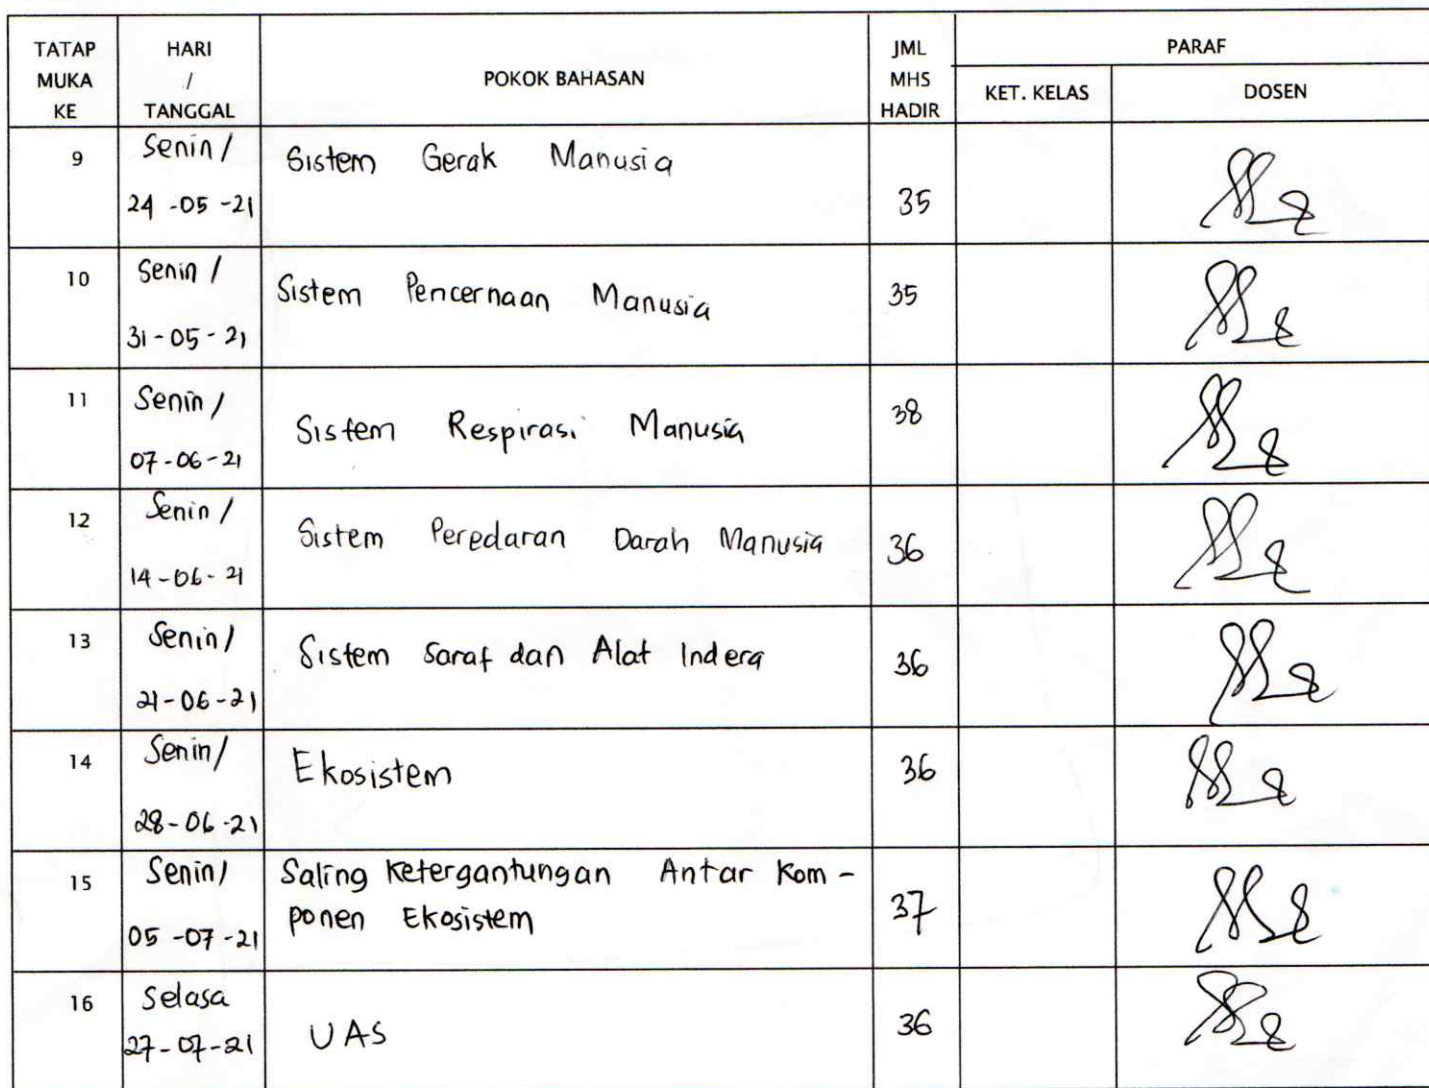 TATAP MUKA KE HARI / TANGGAL POKOK BAHASAN JML MHS HADIR PARAF
KET. KELAS DOSEN
9 Senin / 24-05-21 Sistem Gerak Manusia 35
10 Senin / 31-05-21 Sistem Pencernaan Manusia 35
11 Senin / 07-06-21 Sistem Respirasi Manusia 38
12 Senin / 14-06-21 Sistem Peredaran Darah Manusia 36
13 Senin / 21-06-21 Sistem Saraf dan Alat Indera 36
14 Senin / 28-06-21 Ekosistem 36
15 Senin / 05-07-21 Saling Ketergantungan Antar Kom-
ponen Ekosistem 37
16 Selasa 27-07-21 UAS 36